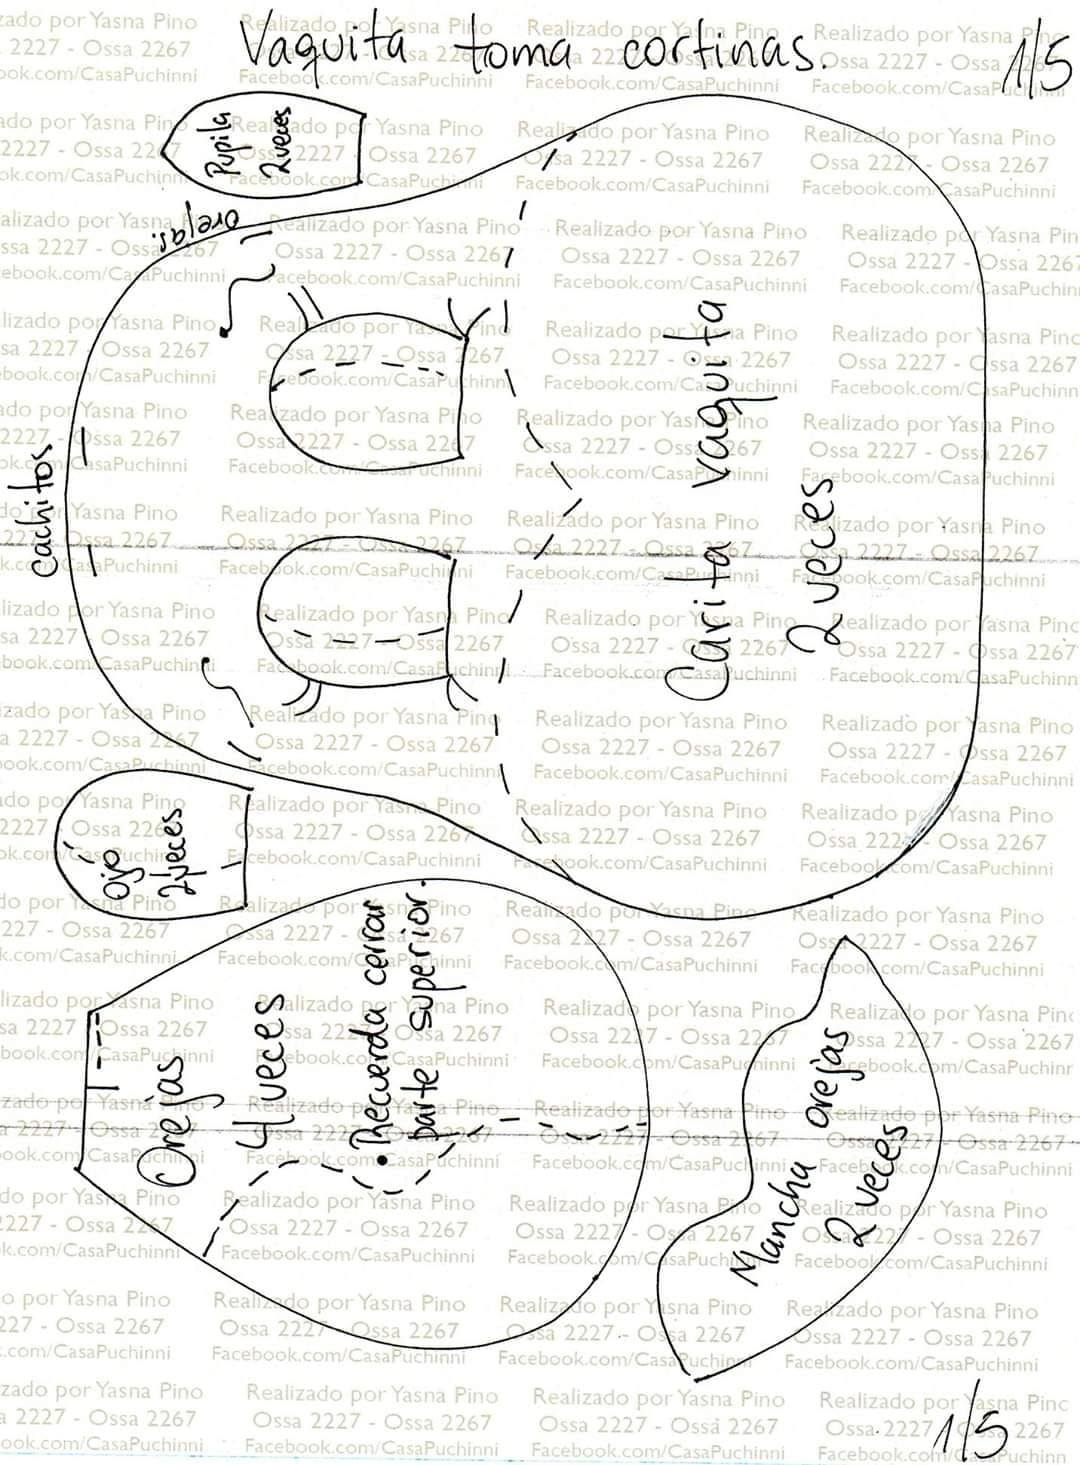 Vaquita toma cortinas.
1/5
Pupila
2 veces
orejas.
cachitos
Carita vaquita
2 veces
ojo
2 veces
Orejas
4 veces
• Recuerda cerrar
parte superior.
Mancha orejas
2 veces
1/5
Realizado por Yasna Pino
Ossa 2227 - Ossa 2267
Facebook.com/CasaPuchinni